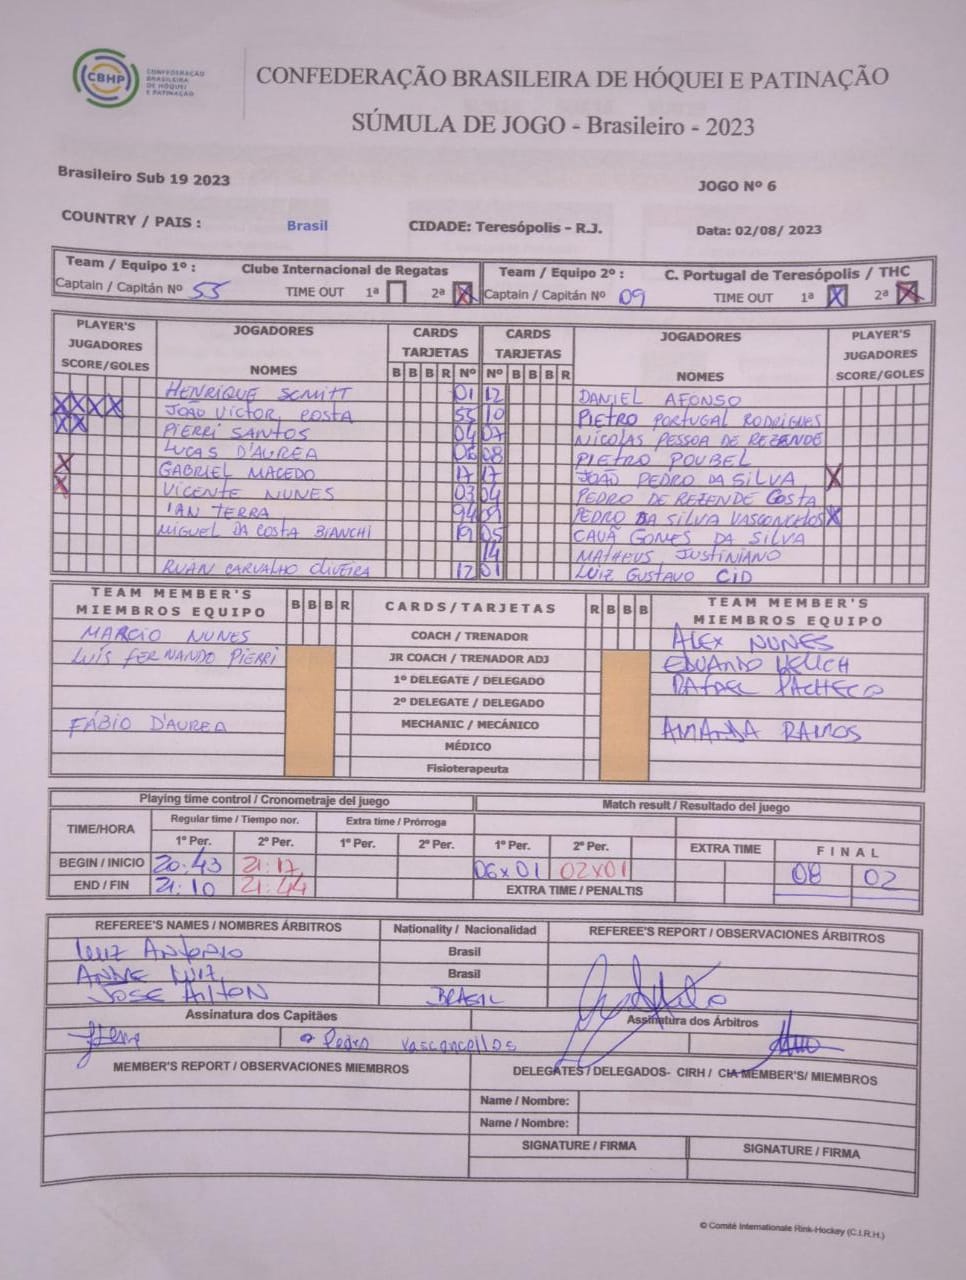 CBHP CONFEDERAÇÃO
BRASILEIRA
DE HÓQUEI
E PATINAÇÃO
CONFEDERAÇÃO BRASILEIRA DE HÓQUEI E PATINAÇÃO
SÚMULA DE JOGO - Brasileiro - 2023
Brasileiro Sub 19 2023
JOGO Nº 6
COUNTRY / PAIS : Brasil CIDADE: Teresópolis - R.J. Data: 02/08/ 2023
Team / Equipo 1º : Clube Internacional de Regatas Team / Equipo 2º : C. Portugal de Teresópolis / THC
Captain / Capitán Nº 55 TIME OUT 1ª 2ª X Captain / Capitán Nº 09 TIME OUT 1ª X 2ª X
PLAYER'S JUGADORES SCORE/GOLES JOGADORES NOMES CARDS TARJETAS CARDS TARJETAS JOGADORES NOMES PLAYER'S JUGADORES SCORE/GOLES
B B B R Nº Nº B B B R
HENRIQUE SCMITT 01 12 DANIEL AFONSO
XXXX JOÃO VICTOR COSTA 55 10 PIETRO PORTUGAL RODRIGUES
XX PIERRI SANTOS 04 07 NICOLAS PESSOA DE REZENDE
LUCAS D'AUREA 06 08 PIETRO POUBEL
X GABRIEL MACEDO 17 17 JOÃO PEDRO DA SILVA X
X VICENTE NUNES 03 04 PEDRO DE REZENDE COSTA
IAN TERRA 94 09 PEDRO DA SILVA VASCONCELOS X
MIGUEL DA COSTA BIANCHI 19 05 CAUÃ GOMES DA SILVA
14 MATHEUS JUSTINIANO
RUAN CARVALHO OLIVEIRA 12 01 LUIZ GUSTAVO CID
TEAM MEMBER'S MIEMBROS EQUIPO B B B R CARDS/TARJETAS R B B B TEAM MEMBER'S MIEMBROS EQUIPO
MARCIO NUNES COACH / TRENADOR ALEX NUNES
LUÍS FERNANDO PIERRI JR COACH / TRENADOR ADJ EDUARDO
1º DELEGATE / DELEGADO RAFAEL PACHECO
2º DELEGATE / DELEGADO
FÁBIO D'AUREA MECHANIC / MECÁNICO AMANDA RAMOS
MÉDICO
Fisioterapeuta
Playing time control / Cronometraje del juego Match result / Resultado del juego
TIME/HORA Regular time / Tiempo nor. Extra time / Prórroga
1º Per. 2º Per. 1º Per. 2º Per. 1º Per. 2º Per. EXTRA TIME FINAL
BEGIN / INICIO 20:43 21:17 06x01 02x01 08 02
END / FIN 21:10 21:44 EXTRA TIME / PENALTIS
REFEREE'S NAMES / NOMBRES ÁRBITROS Nationality / Nacionalidad REFEREE'S REPORT / OBSERVACIONES ÁRBITROS
LUIZ ANTONIO Brasil
ANDRE LUIZ Brasil
JOSE AILTON BRASIL
Assinatura dos Capitães Assinatura dos Árbitros
Pedro Vasconcellos
MEMBER'S REPORT / OBSERVACIONES MIEMBROS DELEGATES / DELEGADOS- CIRH / CIA MEMBER'S/ MIEMBROS
Name / Nombre:
Name / Nombre:
SIGNATURE / FIRMA SIGNATURE / FIRMA
© Comité Internationale Rink-Hockey (C.I.R.H.)